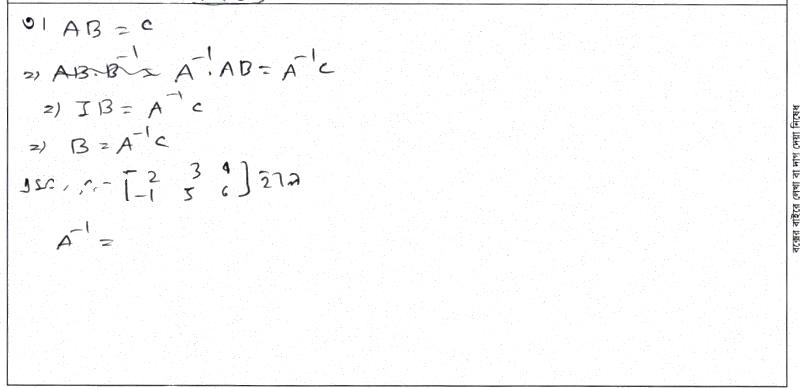 ৩। AB = C
=) A⁻¹. AB = A⁻¹C
=) IB = A⁻¹C
=) B = A⁻¹C
[ 2 3 4
-1 5 6 ] হলে
A⁻¹ =
বক্সের বাইরে লেখা বা দাগ দেয়া নিষেধ